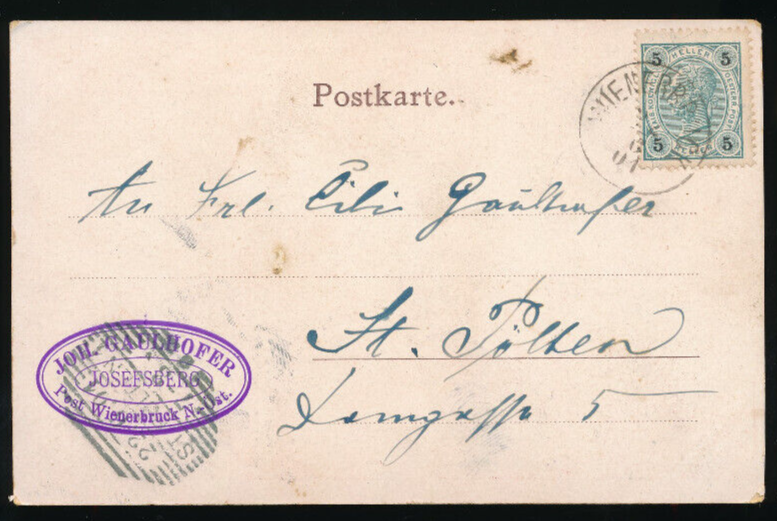 Postkarte.
5 HELLER 5
5 HELLER 5
WIENERBRUCK
An Frl. Cili Gaulhofer
St. Pölten
Domgasse 5
JOH. GAULHOFER
JOSEFSBERG
Post Wienerbruck N.-Öst.
22